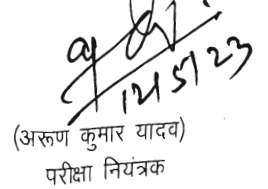 12/5/23
(अरूण कुमार यादव)
परीक्षा नियंत्रक